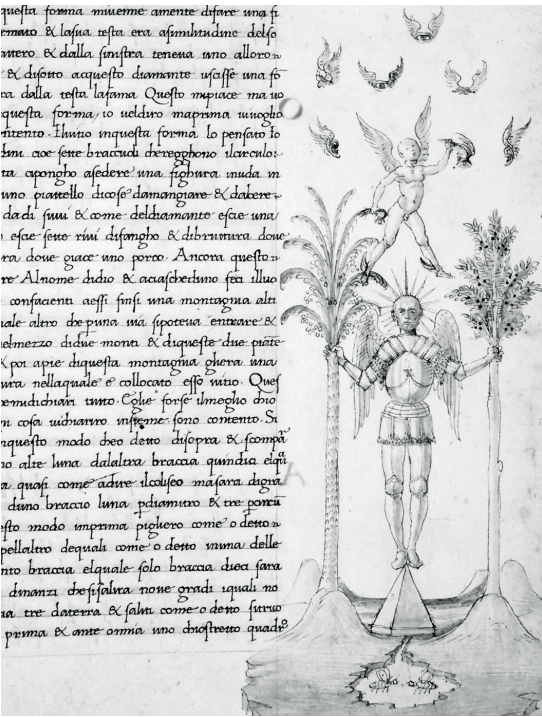 questa forma miuenne amente difare una fi
armato & lasua testa era asimilitudine delso
& dalla sinistra teneua uno alloro
& disotto acquesto diamante uscisse una fō
ra dalla testa lafama Questo mipiace ma uo
questa forma, io ueldiro maprima iuuoglio
ntento. Iluitio inquesta forma lo pensato Io
cioe sette bracciuoli chereggono ilcirculo:
ta cipongho asedere una fighura nuda in
uno piattello dicose damangiare & dabere
da di & come deldiamante escie una
escie sette riui difangho & dibruttura doue
ra doue giace uno porco. Ancora questo
re Alnome didio & aciascheduno feci illuo
consacienti aessi finsi una montagna alti
uale altro che una uia sipoteua entrare &
elmezzo didue monti & diqueste due piate
& poi apie diquesta montagna ghera una
ura nellaquale e collocato esso uitio. Ques
dichiari tutto. Eglie forse ilmeglio chio
n cosa uichiariro insieme. sono contento. Si
nquesto modo cheo detto disopra & scompa
no alte luna dalaltra braccia quindici elqu
a quasi come adire ilcoliseo masara digra
duno braccio luna pdiamitro & tre
sto modo imprima pigliero come o detto
pellaltro dequali come o detto inuna delle
nto braccia elquale solo braccia dieci sara
dinanzi chesisaliua noue gradi iquali no
ua tre daterra & saliti come o detto
prima & ante omnia uno chiostretto quadro